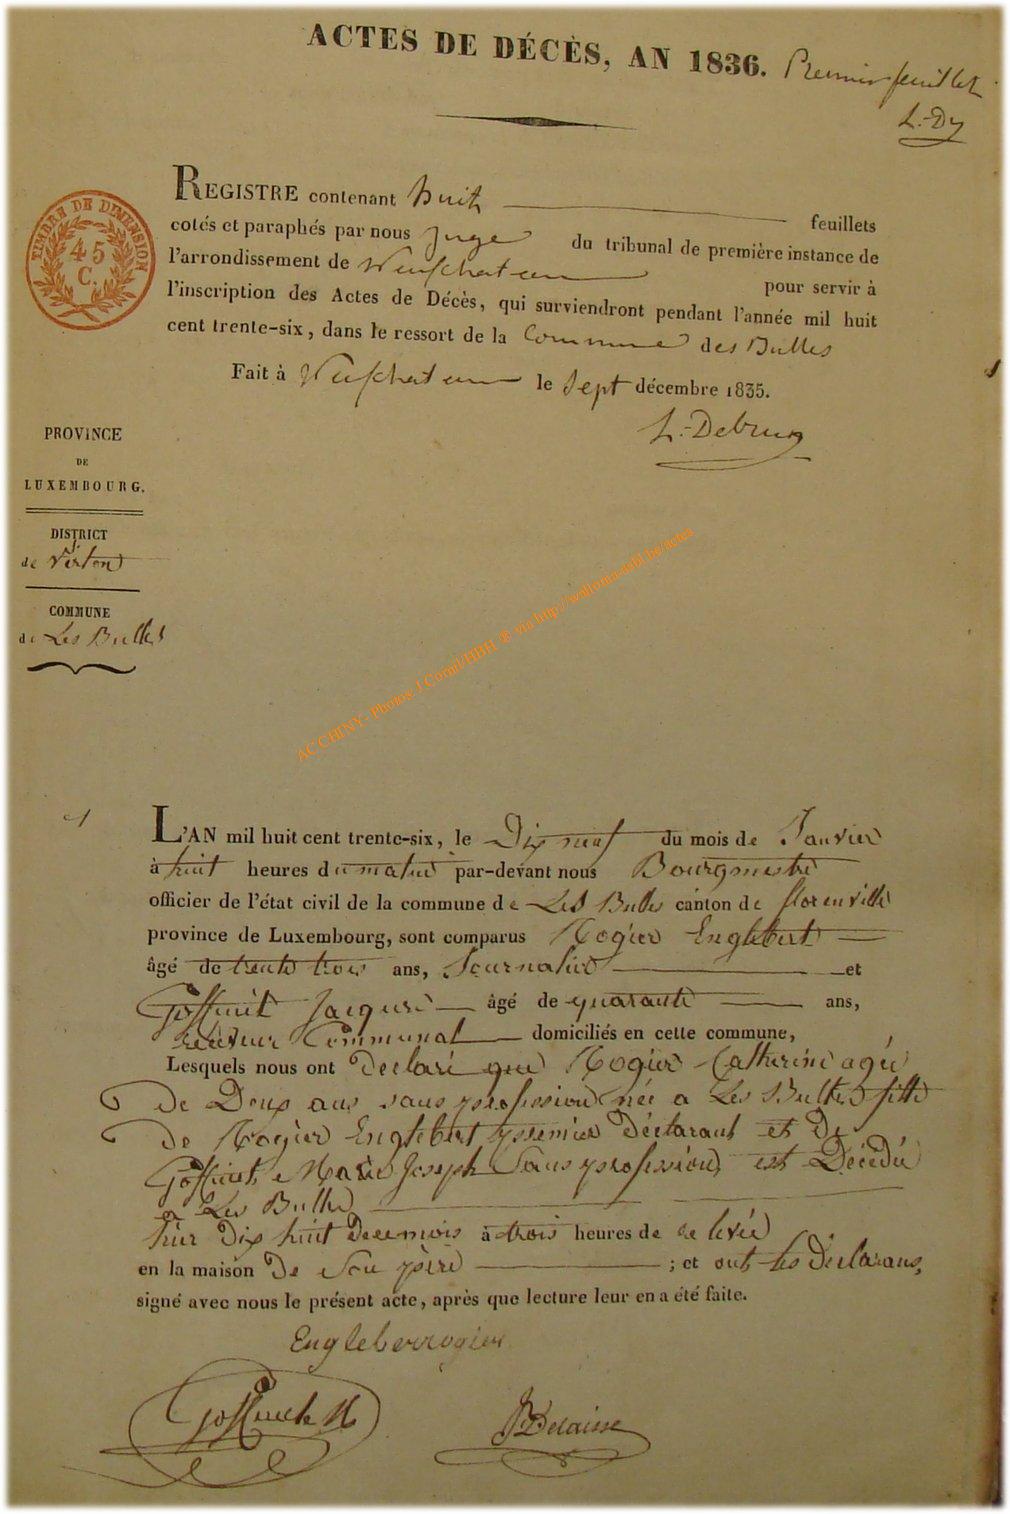 ACTES DE DÉCÈS, AN 1836.
Premier feuillet
L.-Dy
REGISTRE contenant huit feuillets
cotés et paraphés par nous Juge du tribunal de première instance de
l'arrondissement de Neufchateau pour servir à
l'inscription des Actes de Décès, qui surviendront pendant l'année mil huit
cent trente-six, dans le ressort de la Commune des Bulles
Fait à Neufchateau le Sept décembre 1835.
TIMBRE DE DIMENSION
45
C.
PROVINCE
DE
LUXEMBOURG.
DISTRICT
de Virton
COMMUNE
de Les Bulles
ACCHINY- Photos: J Comil/HBH ® via http://wallonia-asbl.be/actes
1
L'AN mil huit cent trente-six, le Dix neuf du mois de Janvier
à huit heures du matin par-devant nous Bourgmestre
officier de l'état civil de la commune de Les Bulles canton de florenville
province de Luxembourg, sont comparus Rogier Englebert
âgé de trente trois ans, Journalier et
Goffinet Jacques âgé de quarante ans,
receveur Communal domiciliés en cette commune,
Lesquels nous ont Declaré que Rogier Catherine agée
De Deux ans sans profession née a Les Bulles fille
De Rogier Englebert premier Déclarant et De
Goffinet Marie Joseph Sans profession, est Décédée
a Les Bulles
hier Dix huit de ce mois à trois heures de relevée
en la maison De Son père ; et ont les Déclarans,
signé avec nous le présent acte, après que lecture leur en a été faite.
Engleber rogier
Delaisse